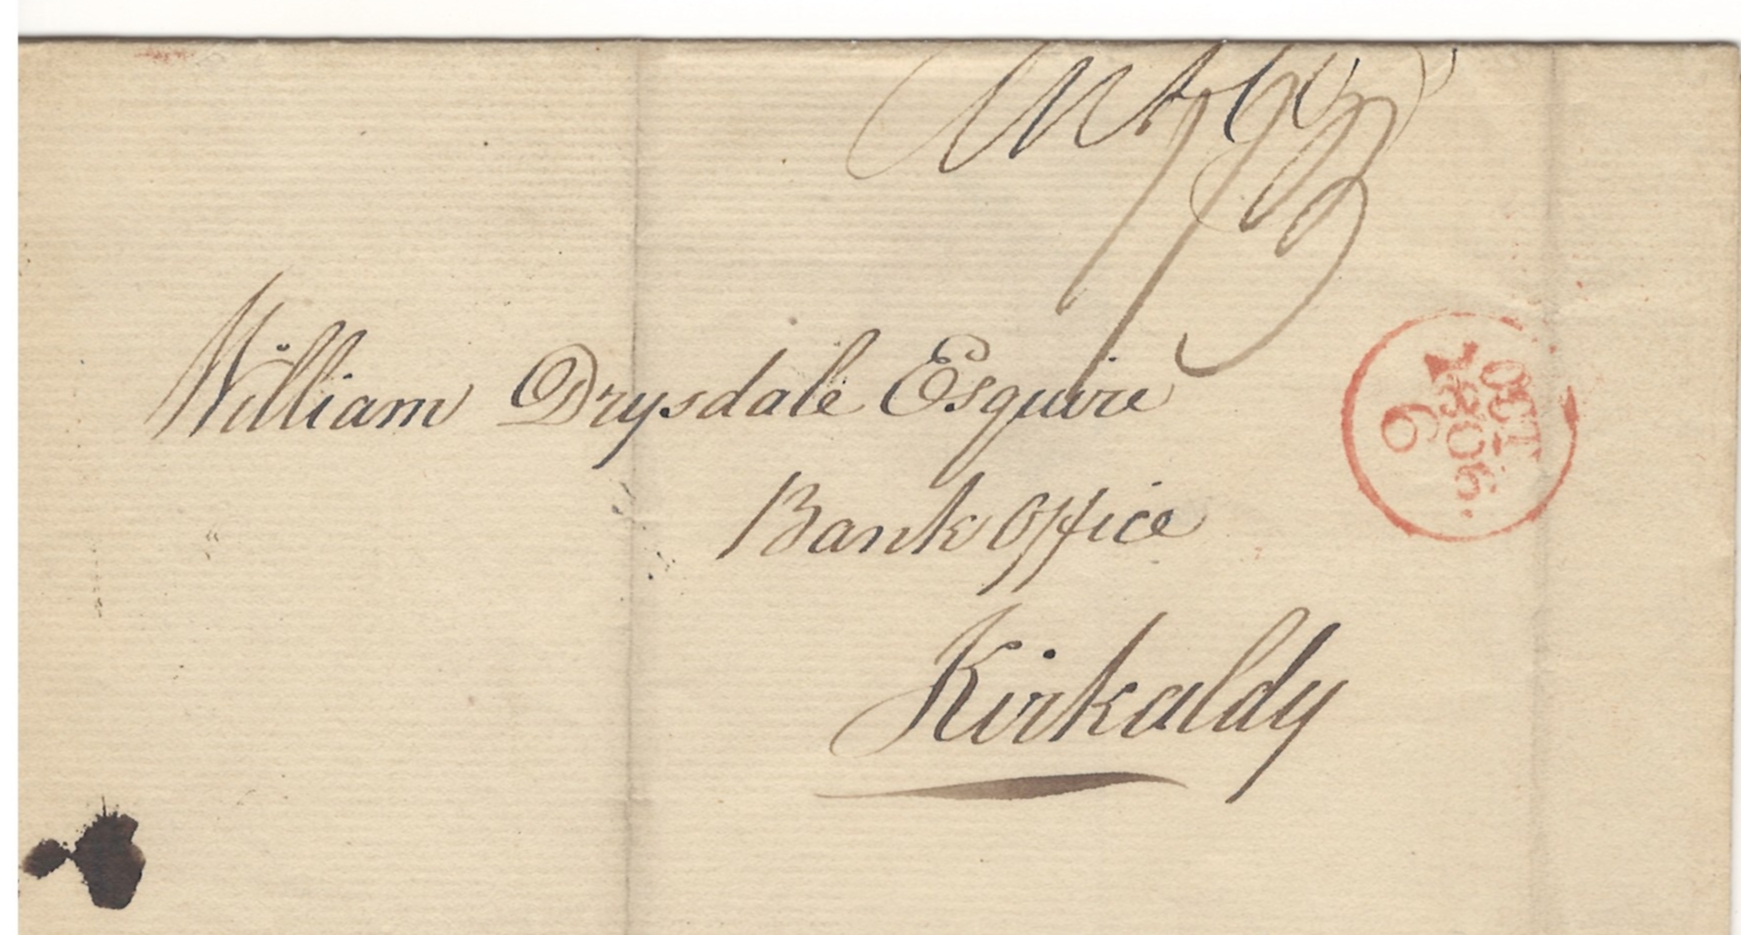 William Drysdale Esquire
Bank Office
Kirkaldy
OCT
1806
6